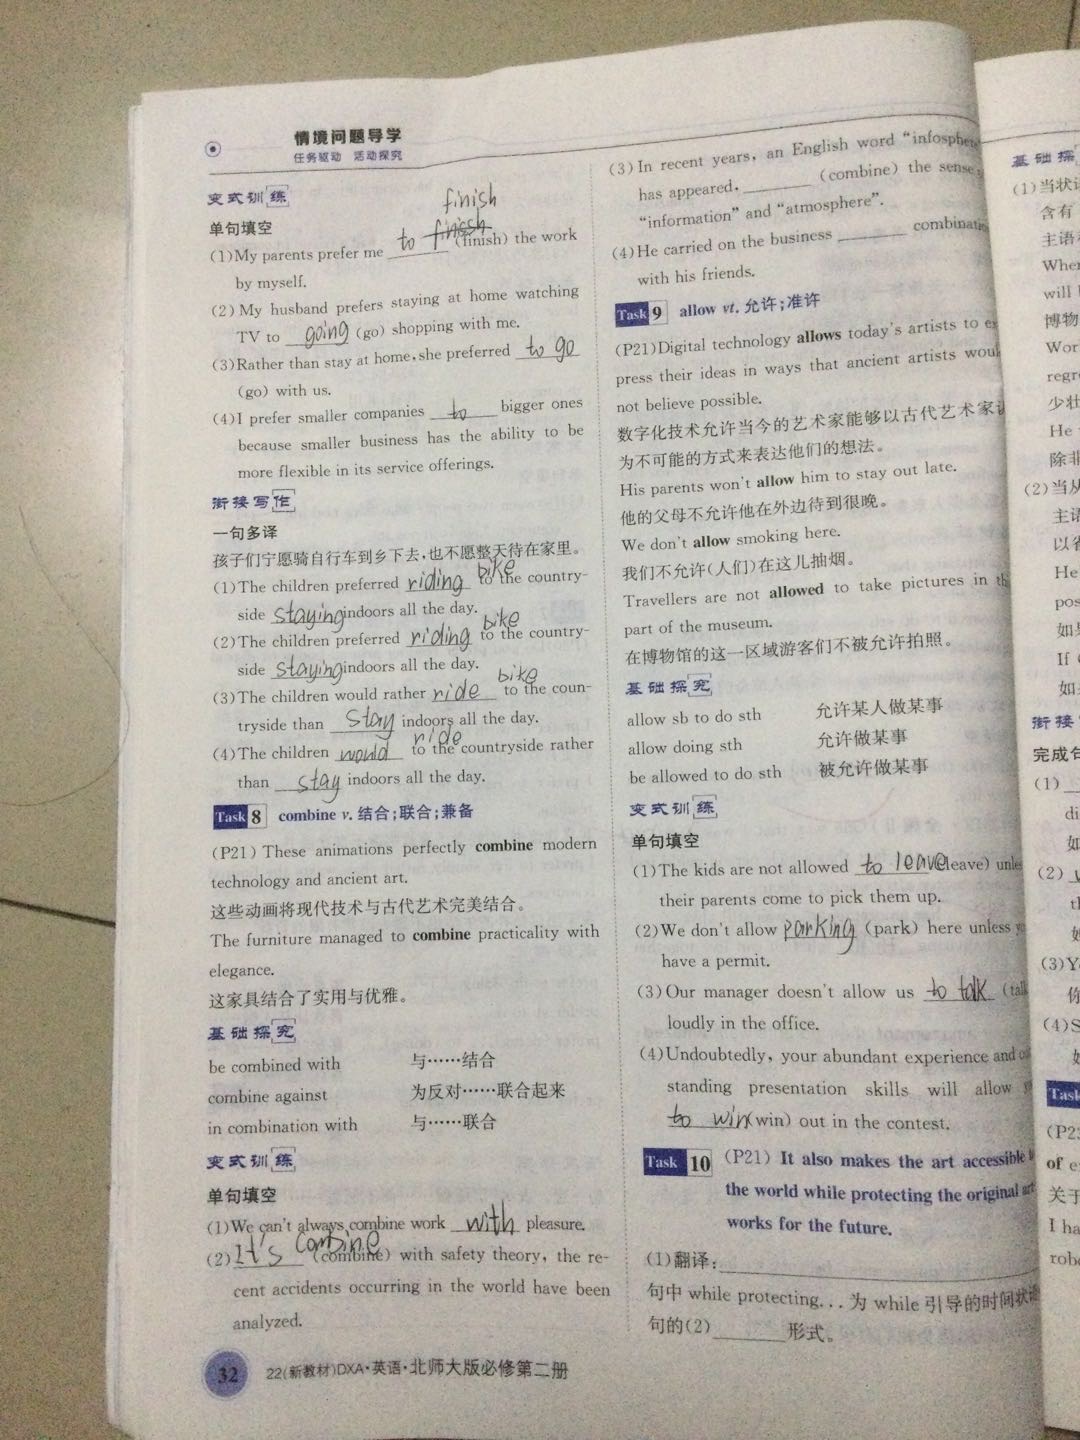 情境问题导学
任务驱动 活动探究
变式训练
单句填空
finish
(1)My parents prefer me to finish (finish) the work
by myself.
(2)My husband prefers staying at home watching
TV to going (go) shopping with me.
(3)Rather than stay at home,she preferred to go
(go) with us.
(4)I prefer smaller companies to bigger ones
because smaller business has the ability to be
more flexible in its service offerings.
衔接写作
一句多译
孩子们宁愿骑自行车到乡下去,也不愿整天待在家里。
(1)The children preferred riding bike to the country-
side staying indoors all the day.
(2)The children preferred riding bike to the country-
side staying indoors all the day.
(3)The children would rather ride bike to the coun-
tryside than stay indoors all the day.
(4)The children would ride to the countryside rather
than stay indoors all the day.
Task 8 combine v. 结合;联合;兼备
(P21) These animations perfectly combine modern
technology and ancient art.
这些动画将现代技术与古代艺术完美结合。
The furniture managed to combine practicality with
elegance.
这家具结合了实用与优雅。
基础探究
be combined with 与……结合
combine against 为反对……联合起来
in combination with 与……联合
变式训练
单句填空
(1)We can't always combine work with pleasure.
(2) It's combine (combine) with safety theory, the re-
cent accidents occurring in the world have been
analyzed.
32 22(新教材)DXA·英语·北师大版必修第二册
(3)In recent years, an English word "infosphe
has appeared, ________ (combine) the sense
"information" and "atmosphere".
(4)He carried on the business ________ combinati
with his friends.
Task 9 allow vt. 允许;准许
(P21)Digital technology allows today's artists to ex
press their ideas in ways that ancient artists woul
not believe possible.
数字化技术允许当今的艺术家能够以古代艺术家
为不可能的方式来表达他们的想法。
His parents won't allow him to stay out late.
他的父母不允许他在外边待到很晚。
We don't allow smoking here.
我们不允许(人们)在这儿抽烟。
Travellers are not allowed to take pictures in th
part of the museum.
在博物馆的这一区域游客们不被允许拍照。
基础探究
allow sb to do sth 允许某人做某事
allow doing sth 允许做某事
be allowed to do sth 被允许做某事
变式训练
单句填空
(1)The kids are not allowed to leave (leave) unle
their parents come to pick them up.
(2)We don't allow parking (park) here unless
have a permit.
(3)Our manager doesn't allow us to talk (tal
loudly in the office.
(4)Undoubtedly, your abundant experience and
standing presentation skills will allow
to win (win) out in the contest.
Task 10 (P21) It also makes the art accessible
the world while protecting the original art
works for the future.
(1)翻译:________
句中 while protecting... 为 while 引导的时间状语
句的(2)________形式。
基础探
(1)当状语
含有
主语
When
will
博物
Wor
regr
少壮
He
除非
(2)当从
主语
以省
He
pos
如果
If
如
衔接
完成句
(1)
di
如
(2)
th
(3)Y
你
(4)S
Task
(P2
of e
关于
I ha
rob